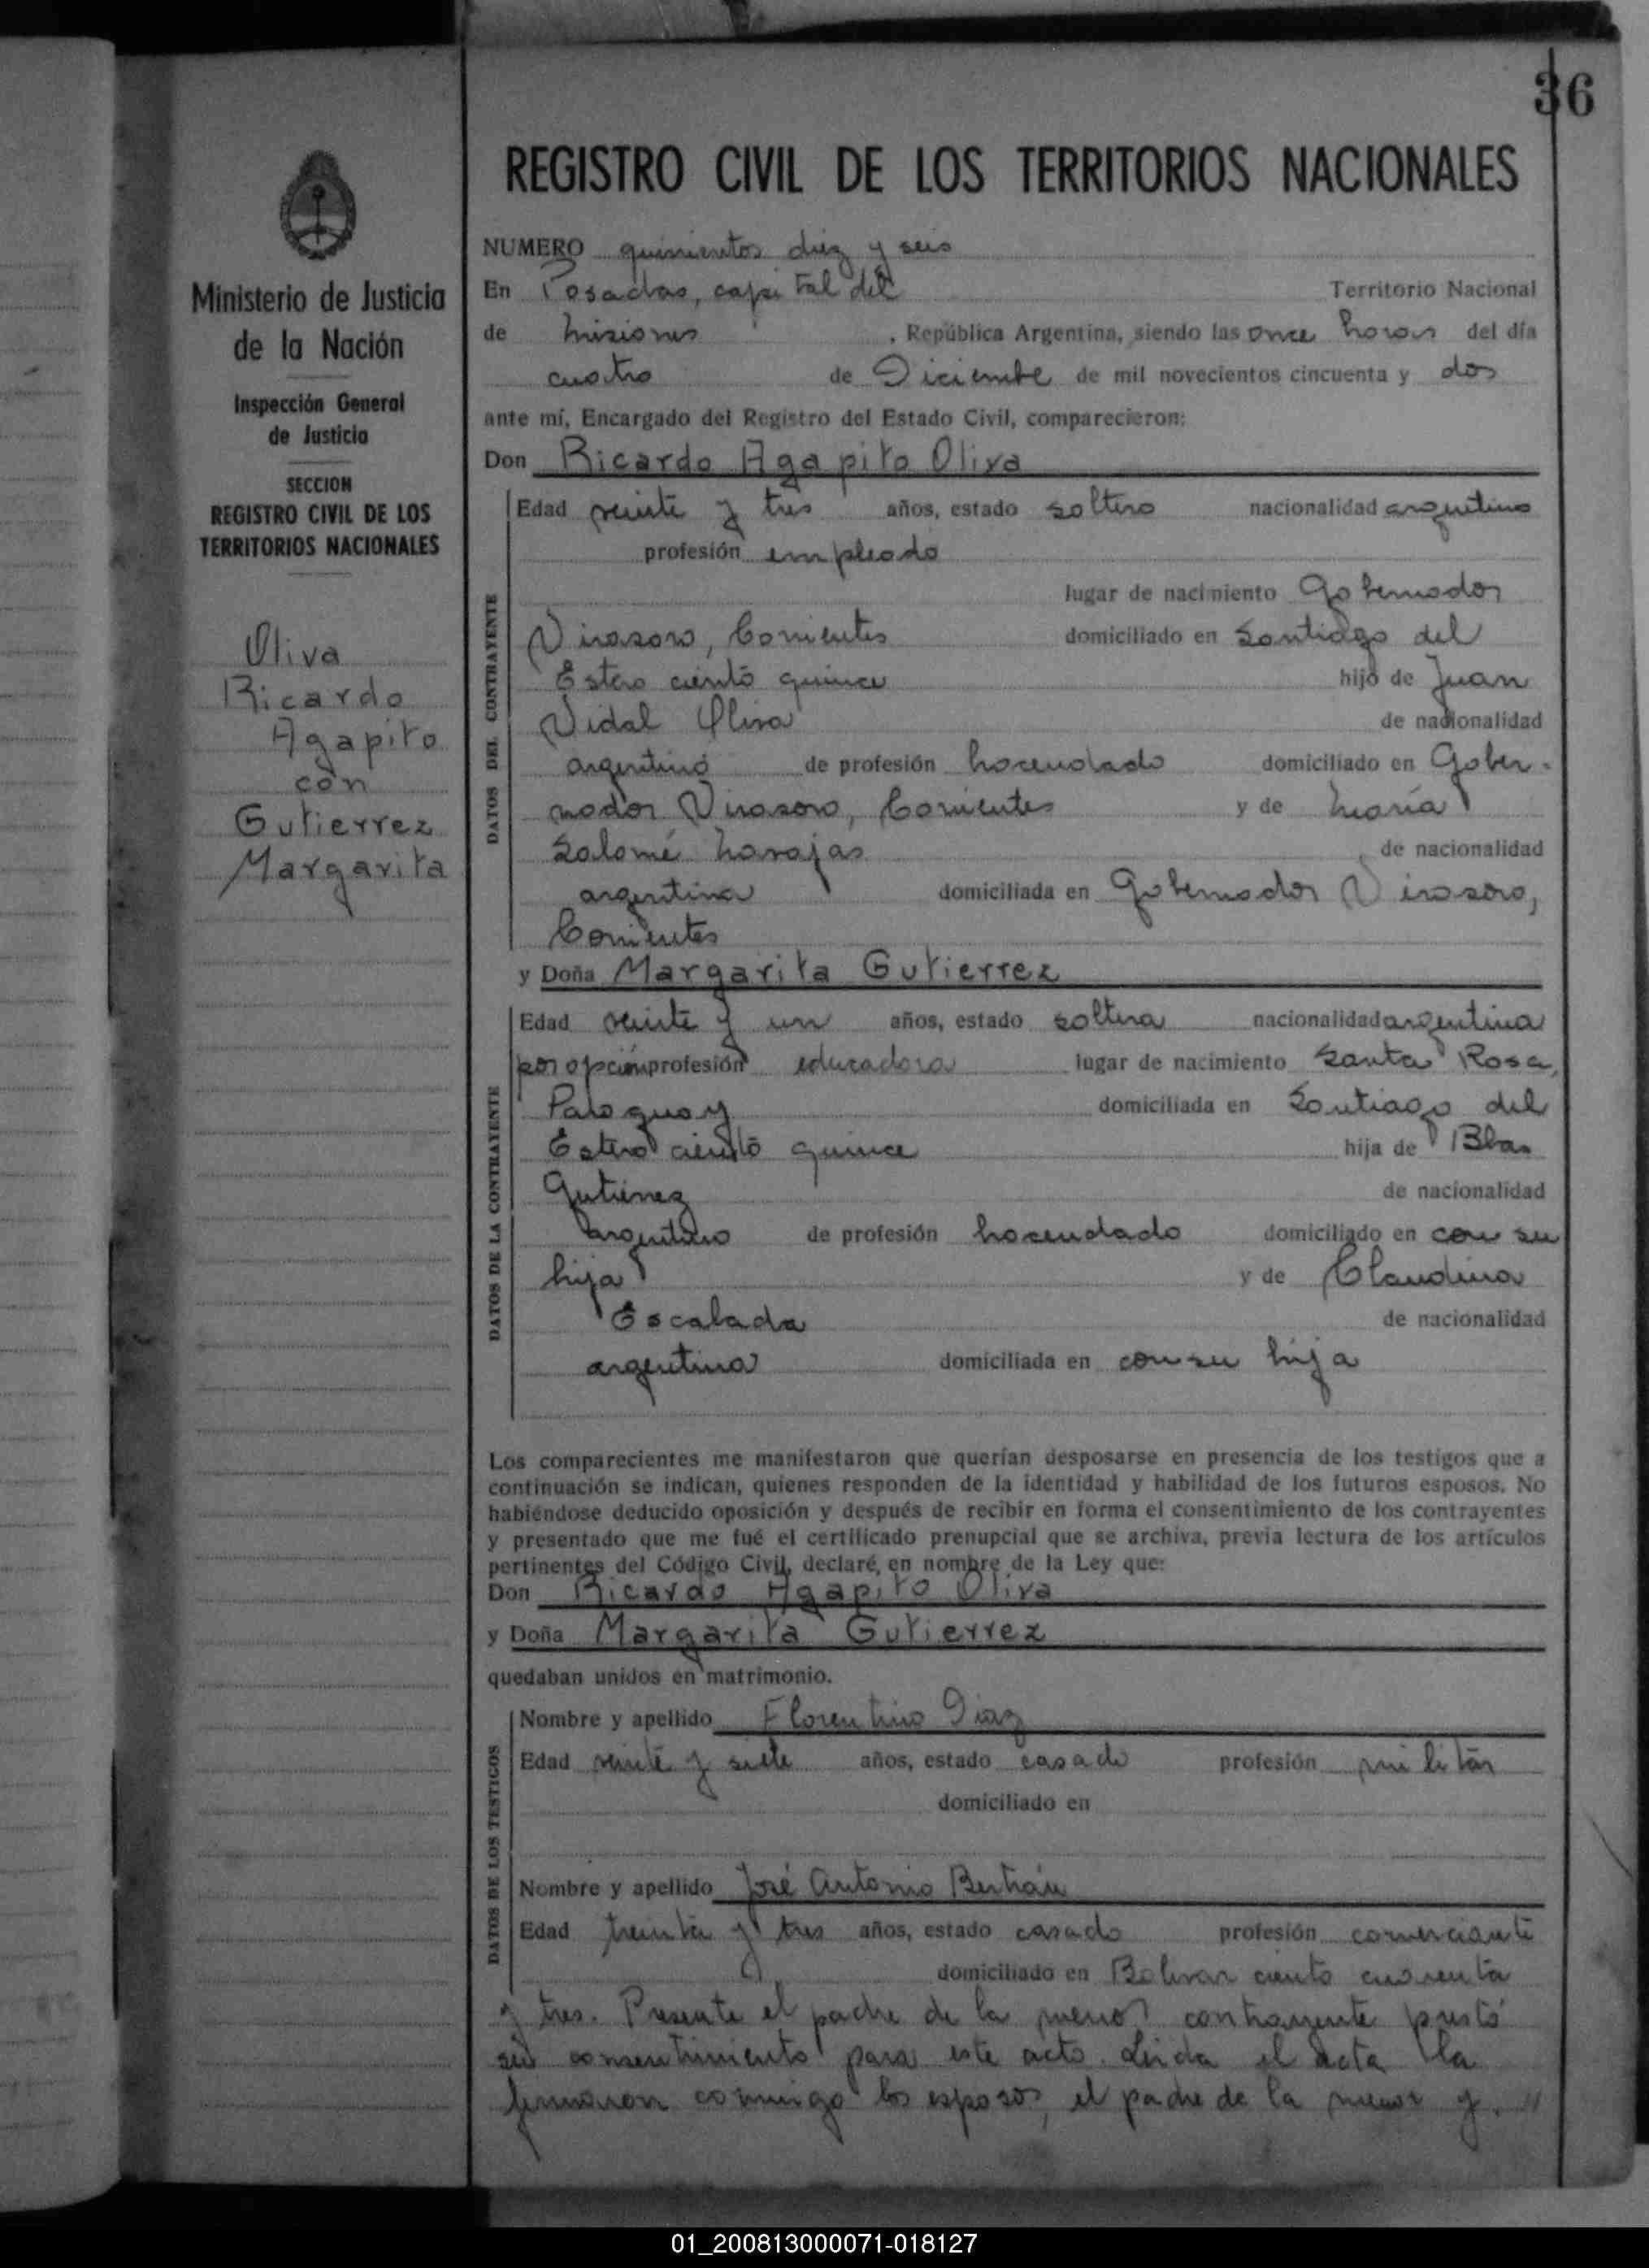 36
REGISTRO CIVIL DE LOS TERRITORIOS NACIONALES
Ministerio de Justicia
de la Nación
Inspección General
de Justicia
SECCION
REGISTRO CIVIL DE LOS
TERRITORIOS NACIONALES
Oliva
Ricardo
Agapito
con
Gutierrez
Margarita
NUMERO quinientos diez y seis
En Posadas, capital del Territorio Nacional
de Misiones, República Argentina, siendo las once horas del día
cuatro de Diciembre de mil novecientos cincuenta y dos
ante mí, Encargado del Registro del Estado Civil, comparecieron:
Don Ricardo Agapito Oliva
DATOS DEL CONTRAYENTE
Edad veinte y tres años, estado soltero nacionalidad argentino
profesión empleado
lugar de nacimiento Gobernador
Virasoro, Corrientes domiciliado en Santiago del
Estero ciento quince hijo de Juan
Vidal Oliva de nacionalidad
argentino de profesión hacendado domiciliado en Gober-
nador Virasoro, Corrientes y de María
Salomé Navajas de nacionalidad
argentina domiciliada en Gobernador Virasoro,
Corrientes
y Doña Margarita Gutierrez
DATOS DE LA CONTRAYENTE
Edad veinte y un años, estado soltera nacionalidad argentina
por opción profesión educadora lugar de nacimiento Santa Rosa,
Paraguay domiciliada en Santiago del
Estero ciento quince hija de Blas
Gutierrez de nacionalidad
argentino de profesión hacendado domiciliado en con su
hija y de Claudina
Escalada de nacionalidad
argentina domiciliada en con su hija
Los comparecientes me manifestaron que querían desposarse en presencia de los testigos que a
continuación se indican, quienes responden de la identidad y habilidad de los futuros esposos. No
habiéndose deducido oposición y después de recibir en forma el consentimiento de los contrayentes
y presentado que me fué el certificado prenupcial que se archiva, previa lectura de los artículos
pertinentes del Código Civil, declaré, en nombre de la Ley que:
Don Ricardo Agapito Oliva
y Doña Margarita Gutierrez
quedaban unidos en matrimonio.
DATOS DE LOS TESTIGOS
Nombre y apellido Florentino Diaz
Edad veinte y siete años, estado casado profesión militar
domiciliado en
Nombre y apellido José Antonio Beltrán
Edad treinta y tres años, estado casado profesión comerciante
domiciliado en Bolivar ciento cuarenta
y tres. Presente el padre de la menor contrayente prestó
su consentimiento para este acto. Leida el acta la
firmaron conmigo los esposos, el padre de la menor y //
01_200813000071-018127